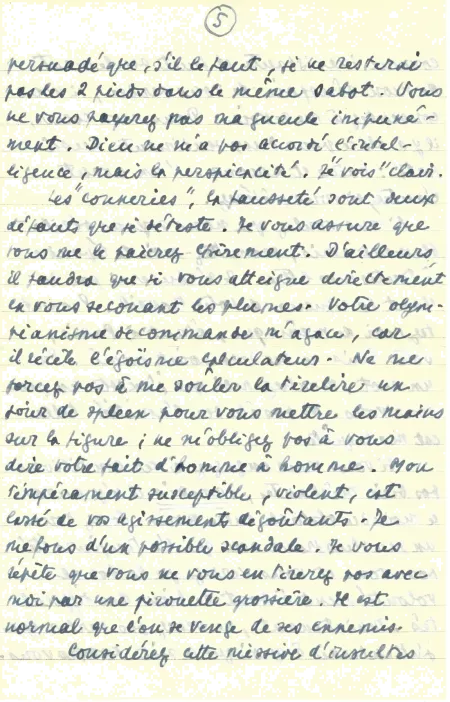 5
persuadé que, s'il le faut, je ne resterai
pas les 2 pieds dans le même sabot. Vous
ne vous payerez pas ma gueule impuné-
ment. Dieu ne m'a pas accordé l'intel-
ligence, mais la perspicacité. Je "vois" clair.
Les "conneries", la fausseté sont deux
défauts que je déteste. Je vous assure que
vous me le paierez chèrement. D'ailleurs
il faudra que je vous atteigne directement
en vous secouant les plumes. Votre olym-
pianisme de commande m'agace, car
il récèle l'égoïsme spéculateur. Ne me
forcez pas à me soûler la tirelire un
jour de spleen pour vous mettre les mains
sur la figure ; ne m'obligez pas à vous
dire votre fait d'homme à homme. Mon
tempérament susceptible, violent, est
lassé de vos agissements dégoûtants. Je
me fous d'un possible scandale. Je vous
répète que vous ne vous en tirerez pas avec
moi par une pirouette grossière. Il est
normal que l'on se venge de ses ennemis.
Considérez cette missive d'insultes